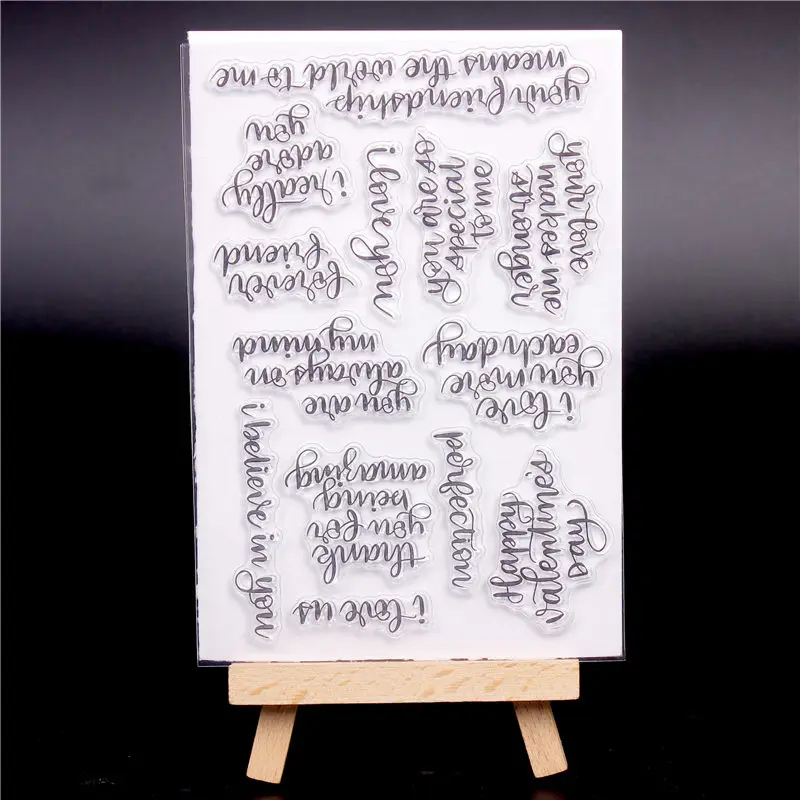 your friendship
means the world to me
i really
adore
you
i love you
you are
so
special
to me
your love
makes me
stronger
forever
friend
you are
always on
my mind
i love
you more
each day
i believe in you
thank
you for
being
amazing
perfection
Happy
valentine's
day
i love us